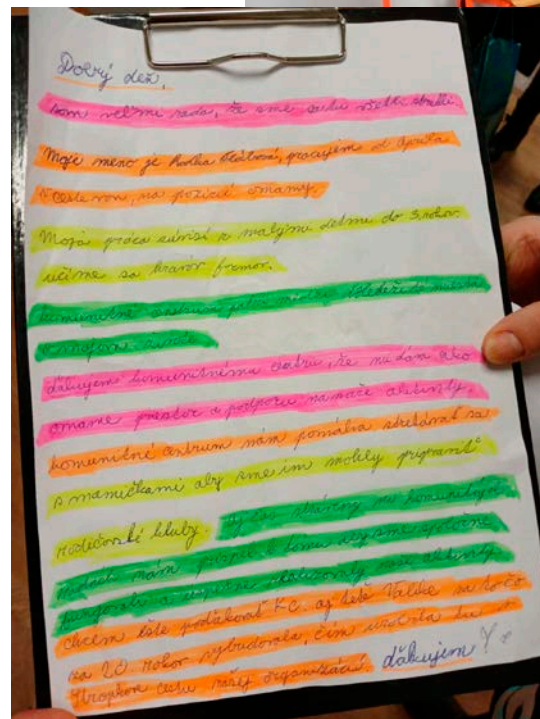 Dobrý deň,
som veľmi rada, že sme sa tu všetci
Moje meno je pracujem od Apríla
v Ceste von, na pozícií omamy.
Moja práca súvisí s malými deťmi do 3 rokov.
učíme sa hravov formov.
komunitné centrum patrí medzi miesta
v
ďakujem komunitnému centru, že mi dám ako
omame priestor a podporu na naše aktivity.
komunitné centrum nám pomáha stretávať sa
s mamičkami aby sme im mohli pripraviť
rodičovské kluby. Aj čas strávený na komunitných
radách nám prispel k tomu aby sme spoločne
fungovali a úspešne realizovaly naše aktivity.
chcem ešte poďakovať KC. aj tete Valike za to čo
za 20 rokov vybudovala, čím uvoľnila tu
cestu našej organizácií. ďakujem